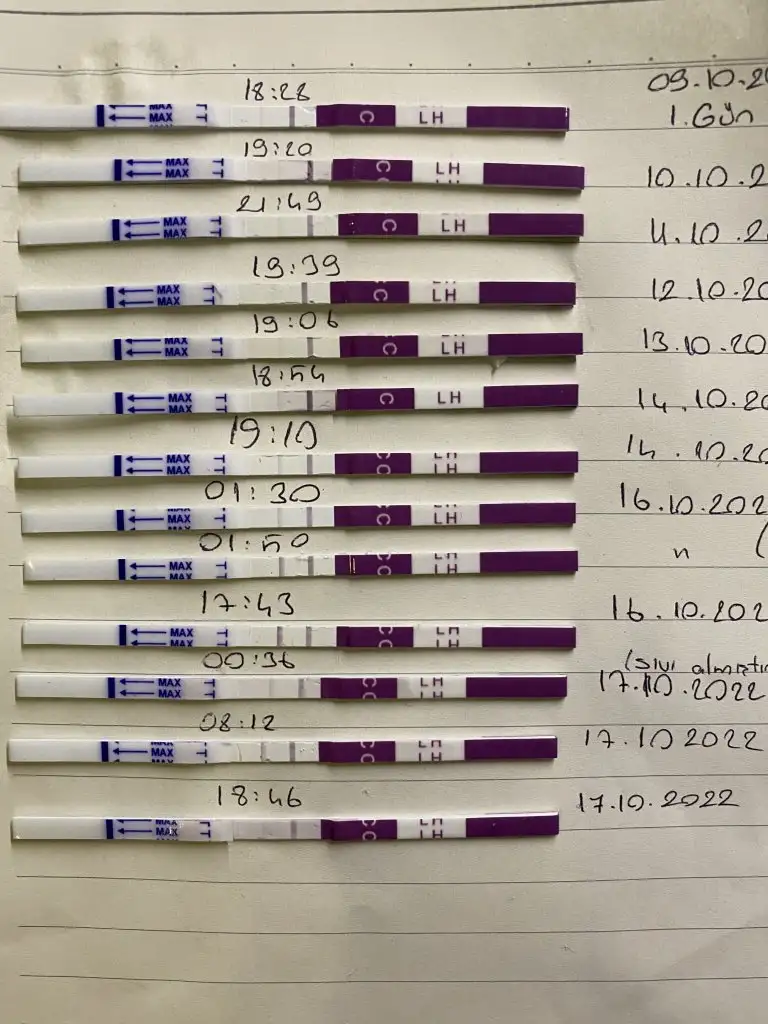 18:28 09.10.20
MAX MAX T T C LH 1.Gün
19:20
MAX MAX T T C C LH LH 10.10.2
21:49
MAX MAX T T C LH 11.10.20
19:39
MAX MAX T T C LH 12.10.20
19:06
MAX MAX T T C LH 13.10.20
18:54
MAX MAX T T C LH 14.10.20
19:10
MAX MAX T T C C LH LH 14.10.20
01:30 16.10.202
MAX MAX T T C C LH LH
01:50
MAX MAX T T C C LH LH n (
17:43 16.10.202
MAX MAX T T C C LH LH
00:36 (sıvı almıştı
MAX MAX T T C C LH LH 17.10.2022
08:12 17.10 2022
MAX MAX MAX T T C C LH LH
18:46 17.10.2022
MAX MAX T T C C LH LH